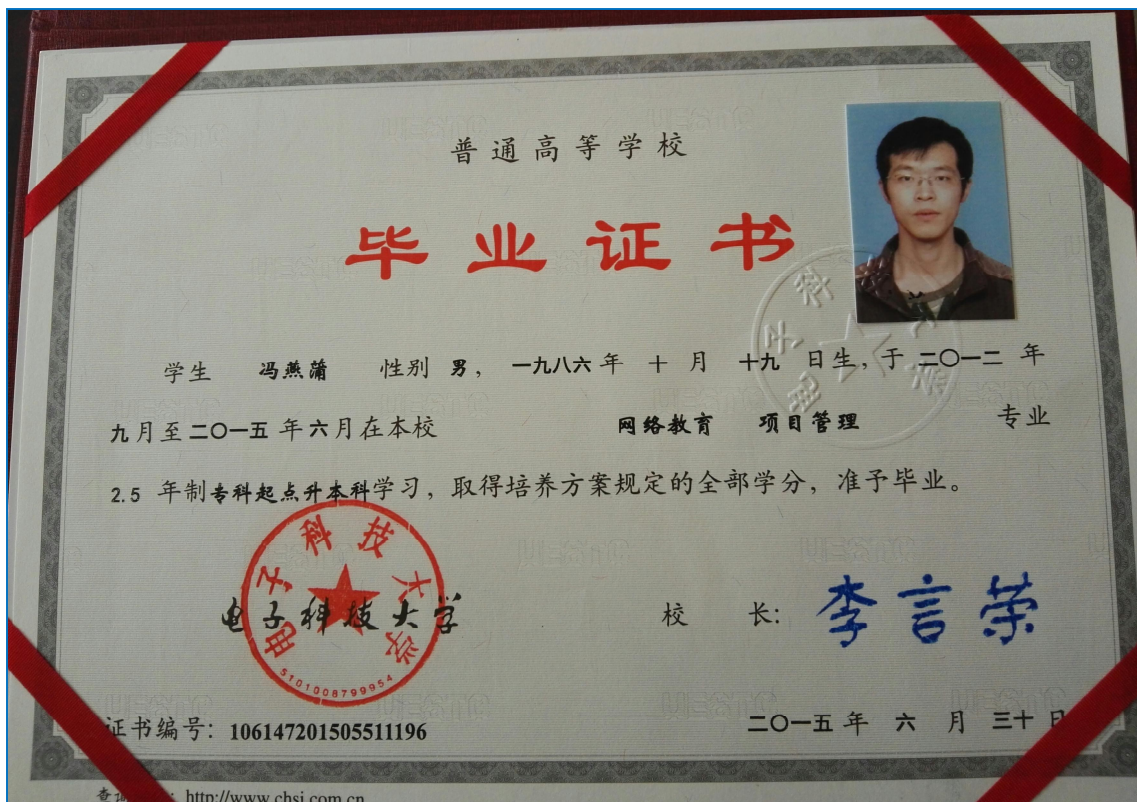 普通高等学校
毕业证书
学生 冯燕蒲 性别 男， 一九八六 年 十 月 十九 日生，于 二〇一二 年
九月至二〇一五年六月在本校 网络教育 项目管理 专业
2.5 年制专科起点升本科学习，取得培养方案规定的全部学分，准予毕业。
电子科技大学
电子科技大学
5101008799954
校 长：李言荣
证书编号：106147201505511196
二〇一五 年 六 月 三十 日
http://www.chsi.com.cn